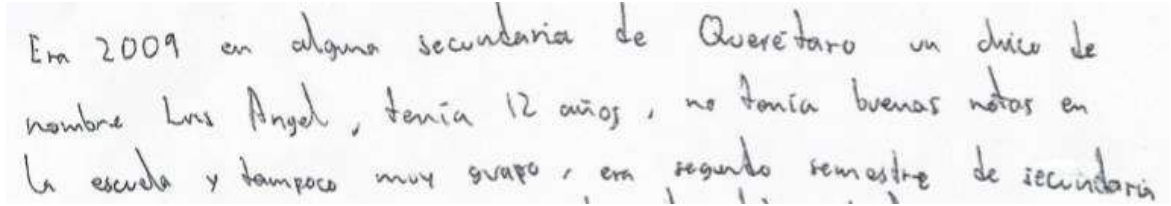 Era 2009 en alguna secundaria de Querétaro un chico de
nombre Luis Angel, tenía 12 años, no tenía buenas notas en
la escuela y tampoco muy guapo, era segundo semestre de secundaria